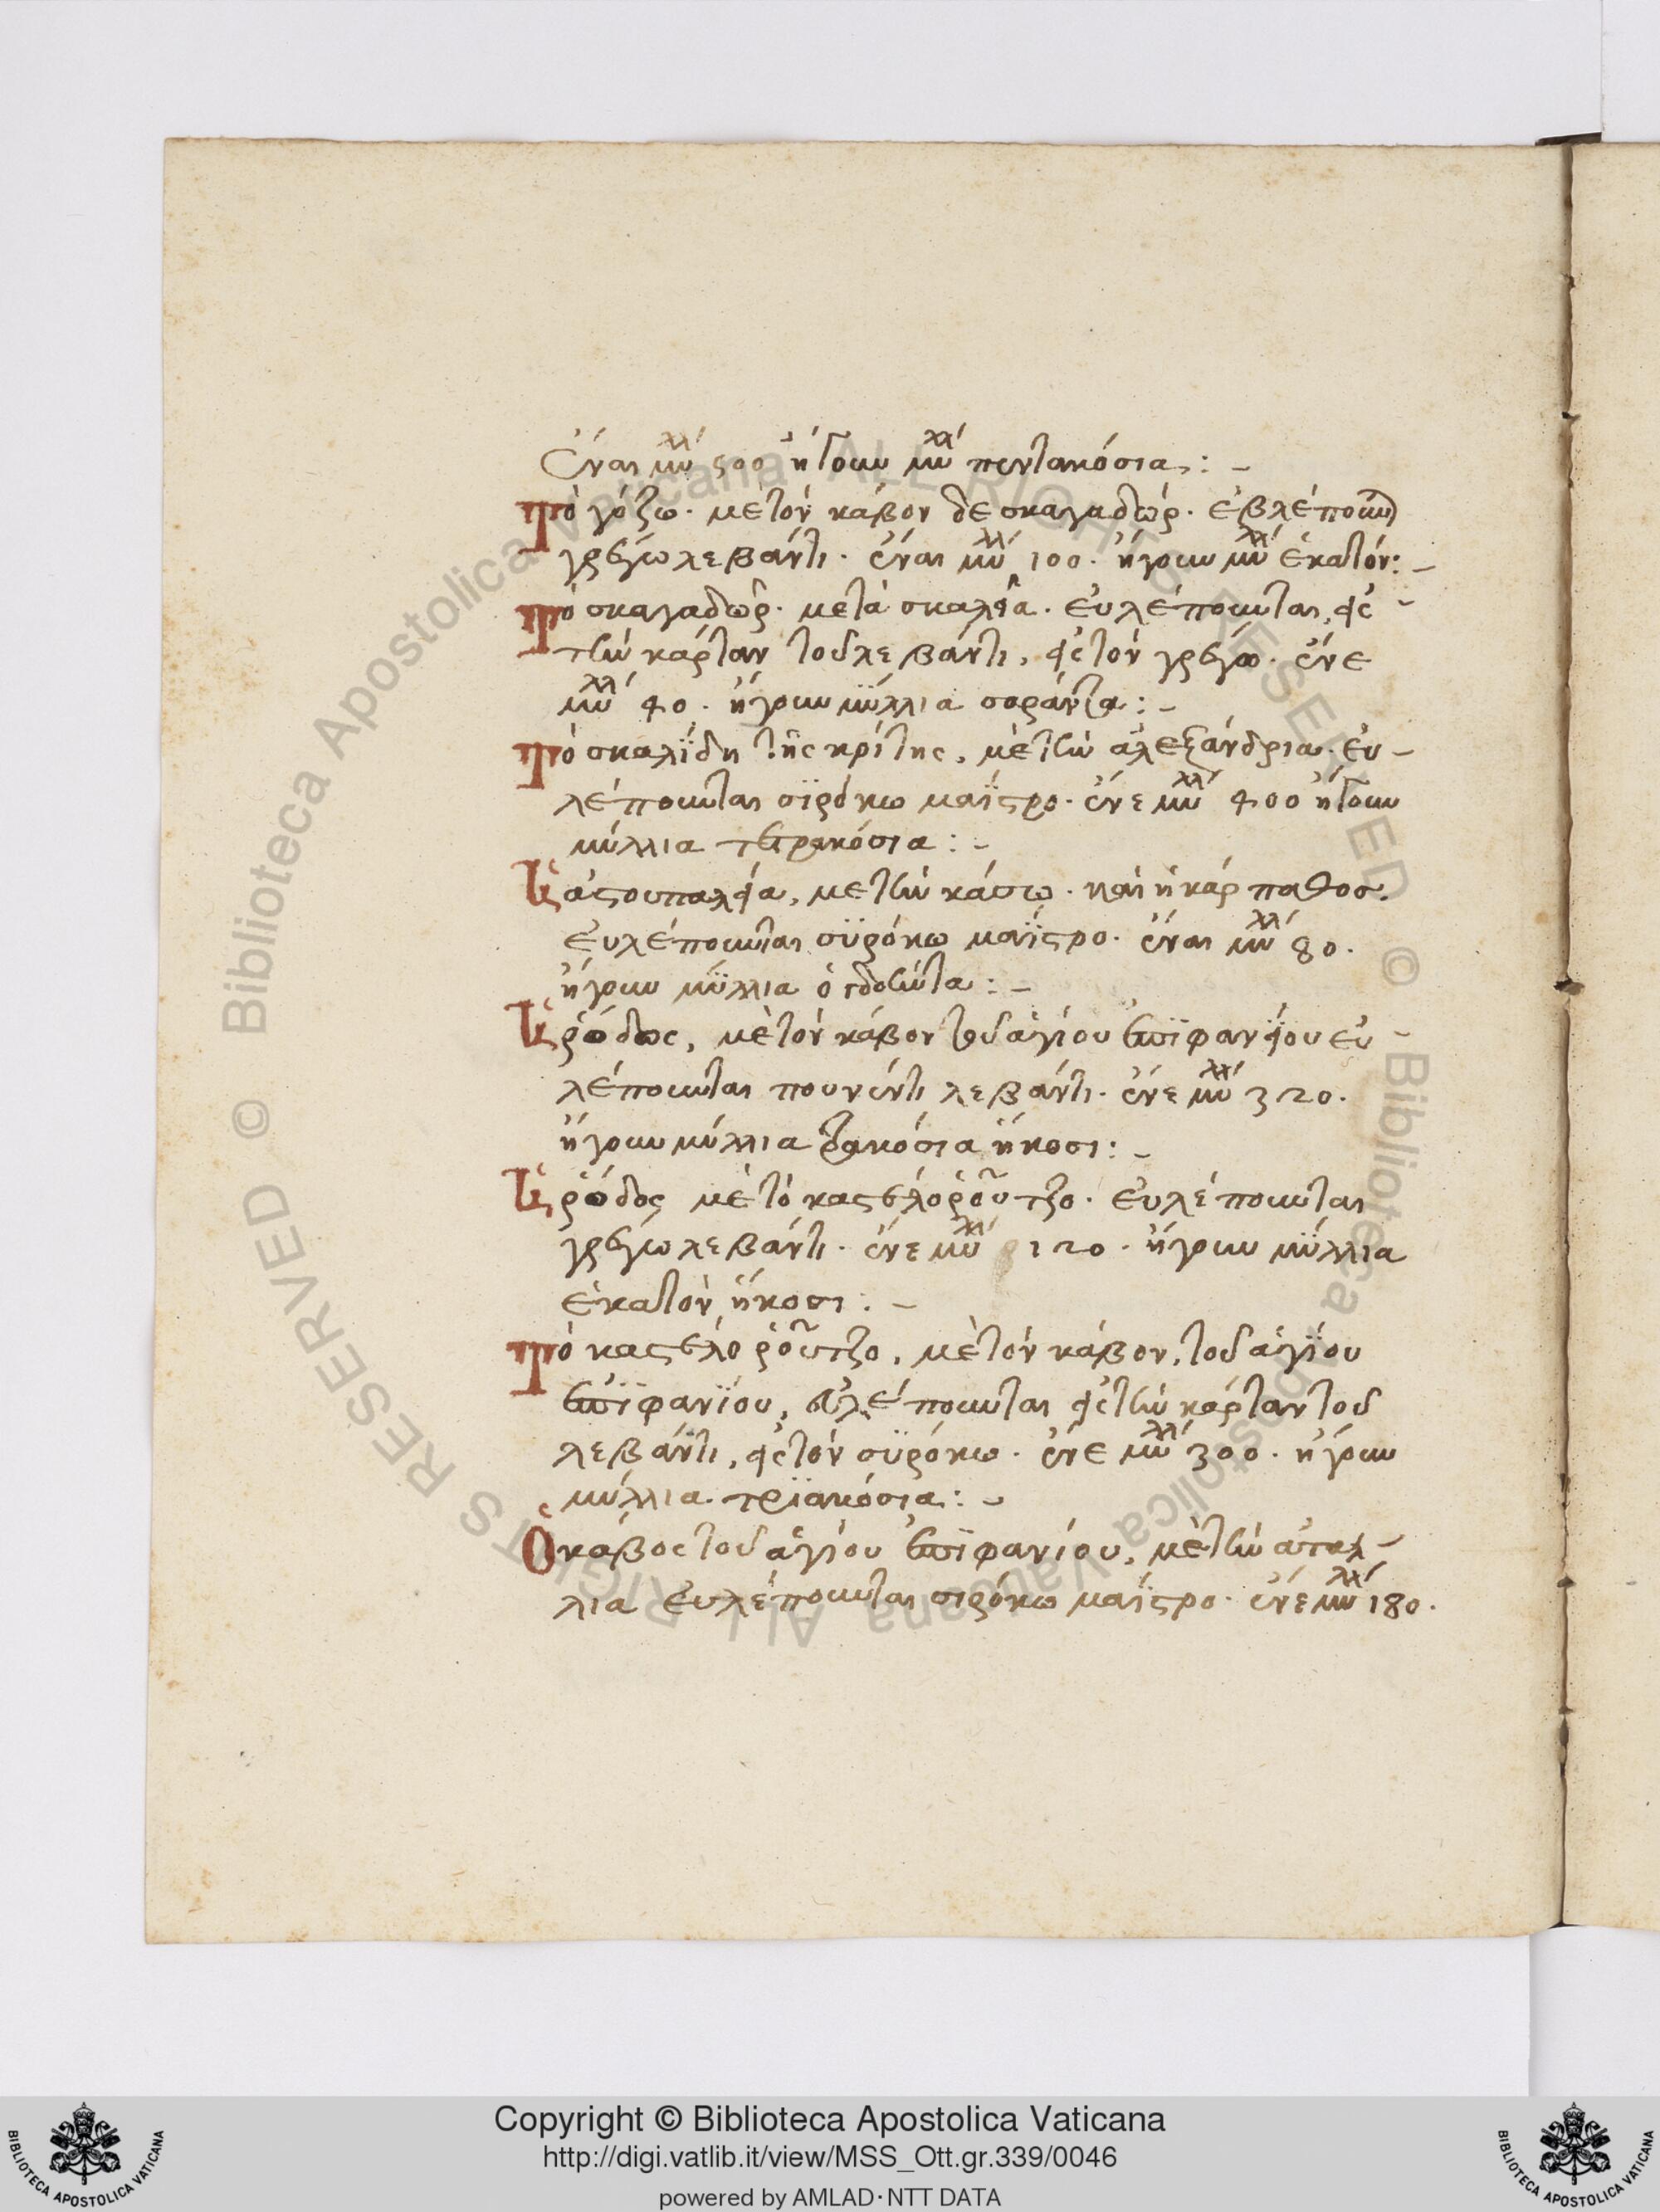 ἔναι μύλλί 500 ἤγουν μύλλί πεντακόσια: –
Τὸ γόζω· μὲ τὸν κάβον δε σκαγαδώρ· ἐβλέπουν
γρέγω λεβάντι· ἔναι μύλλί 100· ἤγουν μύλλί ἑκατόν: –
Τὸ σκαγαδώρ· μετὰ σκαλία· εὐλέπουνται, εἰς
τὴν κάρταν τοῦ λεβάντι, εἰς τὸν γρέγω· ἔνε
μύλλί 40· ἤγουν μύλλια σαράντα: –
Τὸ σκαλίδη τῆς κρίτης, μὲ τὴν ἀλεξάνδρια· εὐ –
λέπουνται σϊρόκω μαΐστρο· ἔνε μύλλί 400 ἤγουν
μύλλια τετρακόσια: –
ἀστουπαλία, με τὴν κάσω· καὶ ἡ κάρπαθοσ.
εὐλέπουνται σϋρόκω μαΐστρο· ἔναι μύλλί 80.
ἤγουν μύλλια ὀγδοήντα: –
Ἡ ῥόδος, μὲ τὸν κάβον τοῦ ἁγίου ἐπϊφανίου εὐ –
λέπουνται πουνέντι λεβάντι· ἔνε μύλλί 320.
ἤγουν μύλλια τρακόσια ἤκοσι: –
Ἡ ῥόδος μὲ τὸ καστέλο ῥοῦτζο· εὐλέπουνται
γρέγω λεβάντι· ἔνε μύλλί 120· ἤγουν μύλλια
ἑκατὸν ἤκοσι: –
Τὸ καστέλο ῥοῦτζο, μὲ τὸν κάβον, τοῦ ἁγΐου
ἐπϊφανΐου, εὐλέπουνται εἰς τὴν κάρταν τοῦ
λεβάντι, εἰς τὸν σϋρόκω· ἔνε μύλλί 300· ἤγουν
μύλλια τρϊακόσια: –
Ὁ κάβος τοῦ ἁγίου ἐπϊφανίου, μὲ τὴν
εὐλέπουνται σιρόκω μαΐστρο· ἔνε μύλλί 180.
Copyright © Biblioteca Apostolica Vaticana
http://digi.vatlib.it/view/MSS_Ott.gr.339/0046
powered by AMLAD·NTT DATA
BIBLIOTECA APOSTOLICA VATICANA
BIBLIOTECA APOSTOLICA VATICANA
© Biblioteca Apostolica Vaticana ALL RIGHTS RESERVED © Biblioteca Apostolica Vaticana ALL RIGHTS RESERVED